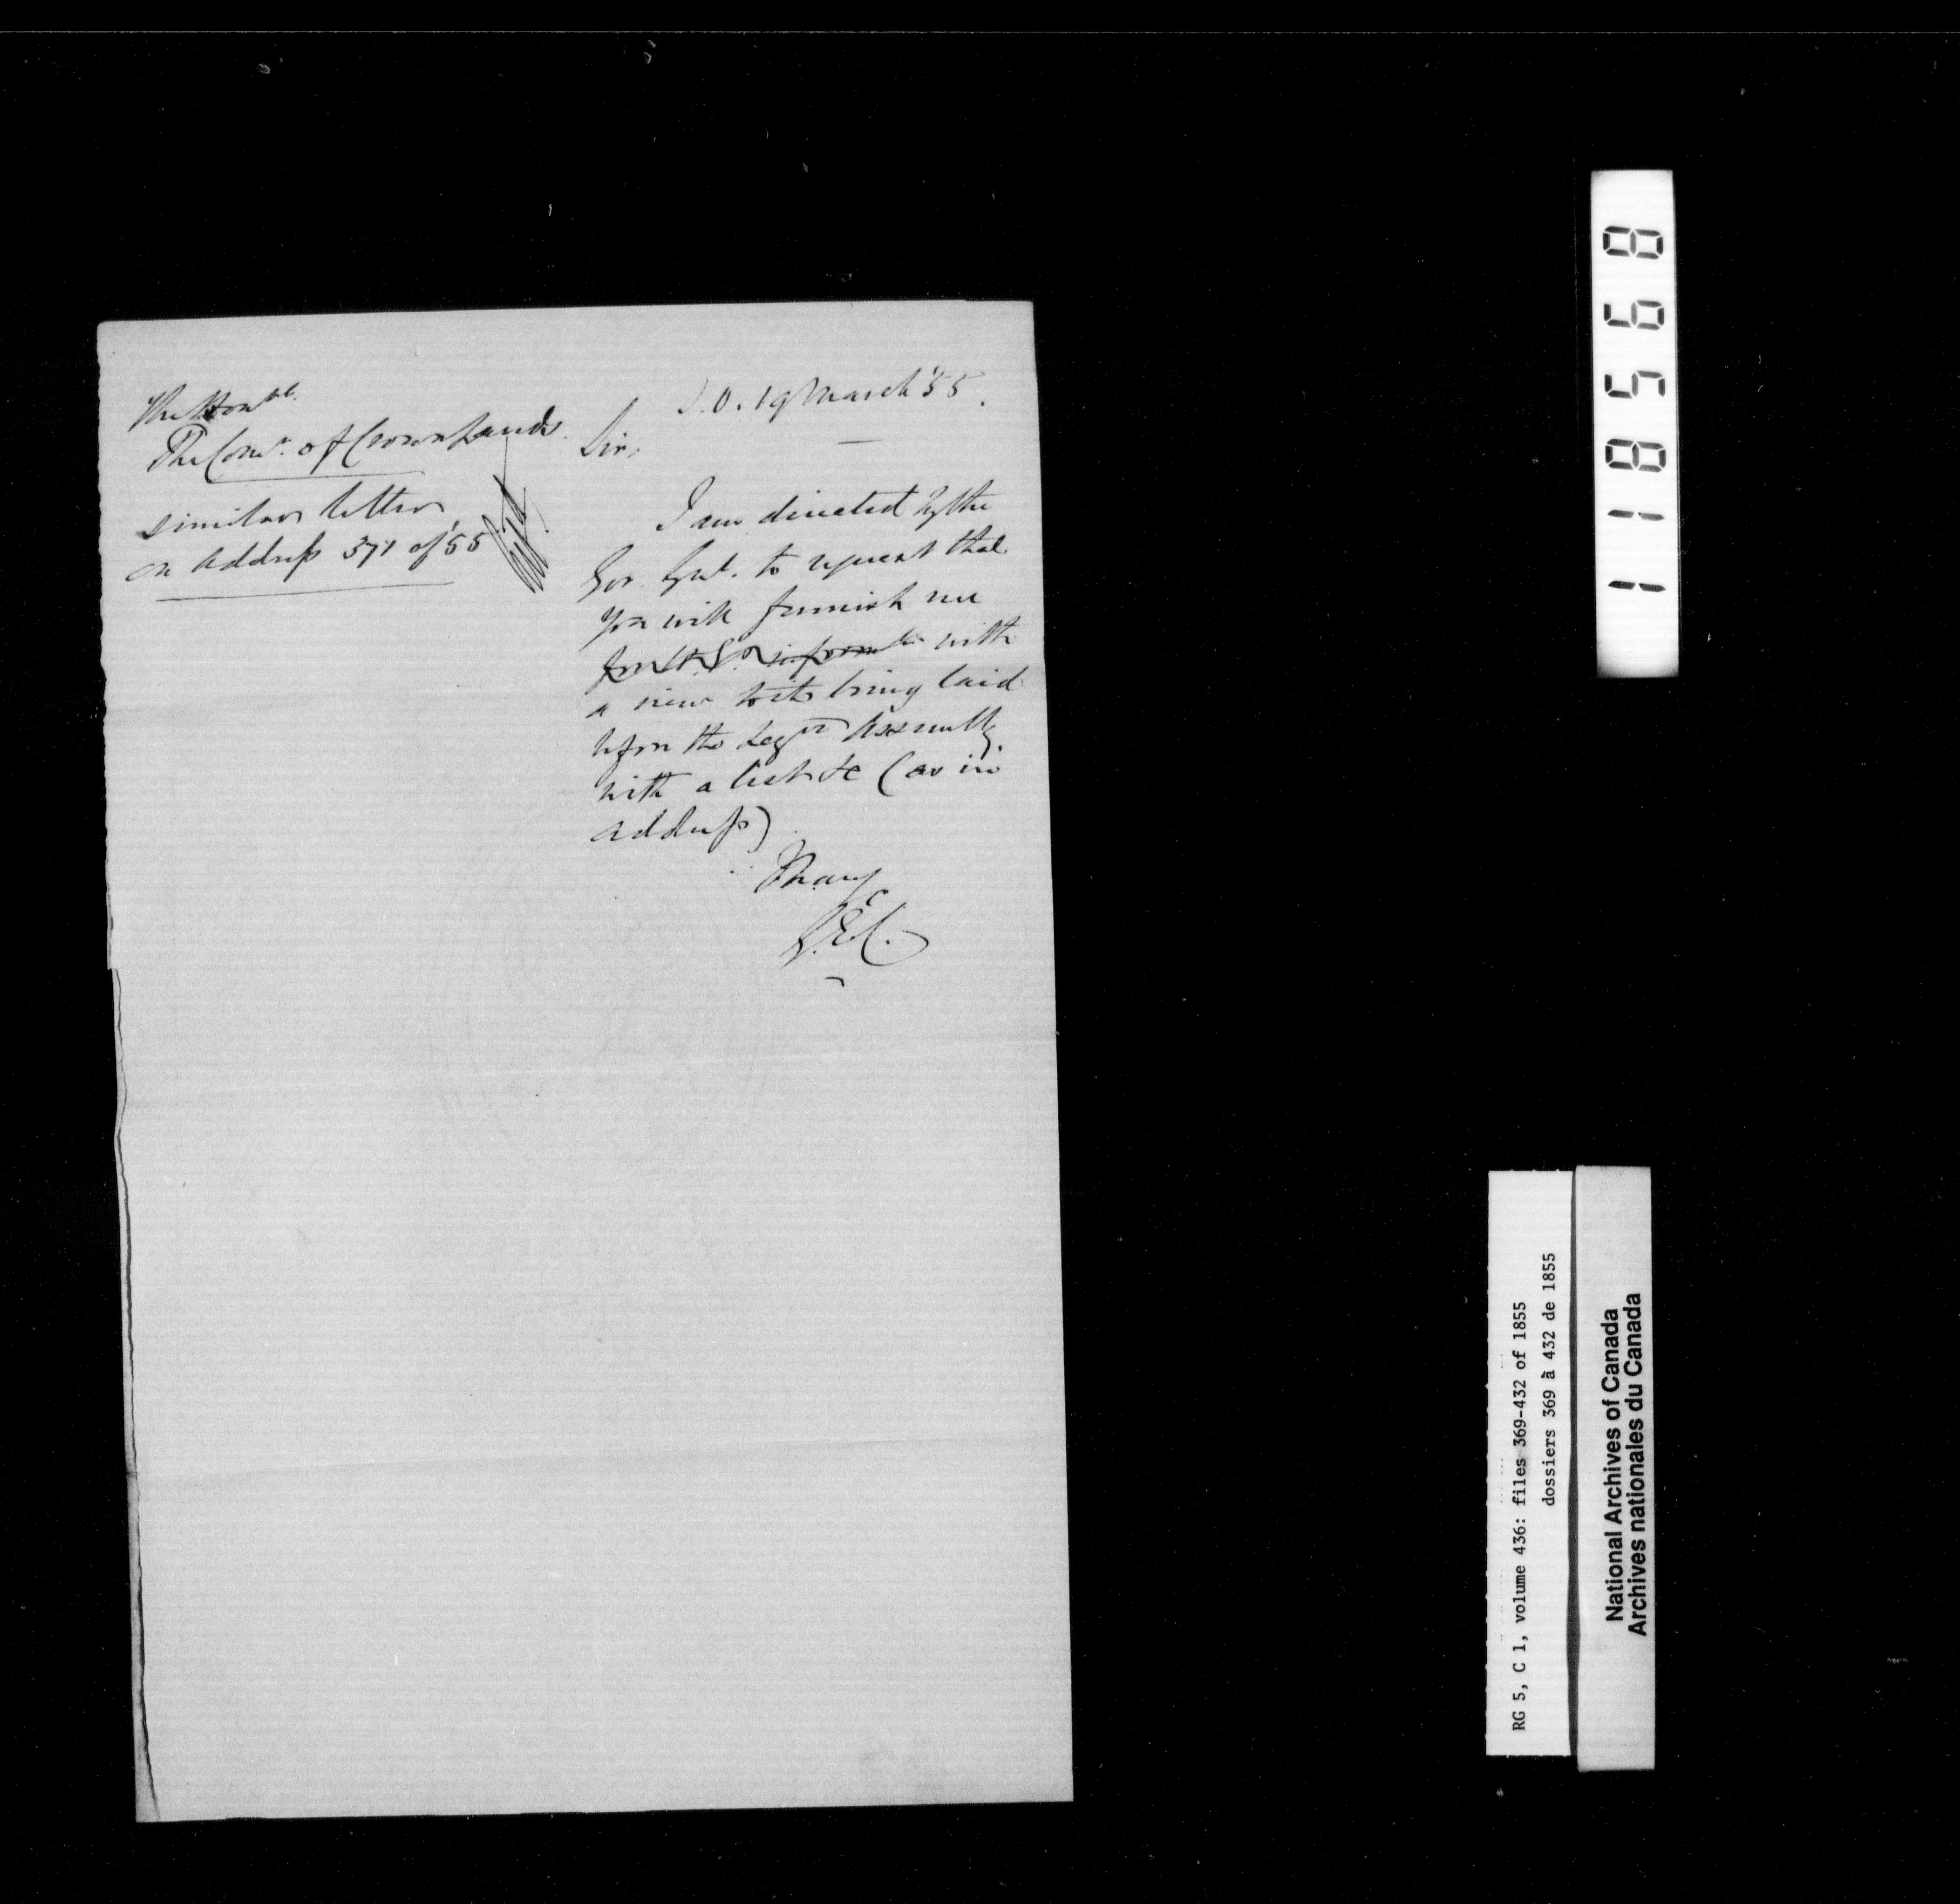 The Honble.
The Comr. of Crown Lands.
similar letter
on address 371 of '55
S.O. 19 March '55.
Sir,
I am directed by the
Gov. Genl. to request that
you will furnish me
with
a view to its being laid
before the Legve Assembly
with a list &c (as in
address)
I have
P.E.C.
118568
RG 5, C 1, volume 436: files 369-432 of 1855
dossiers 369 à 432 de 1855
National Archives of Canada
Archives nationales du Canada